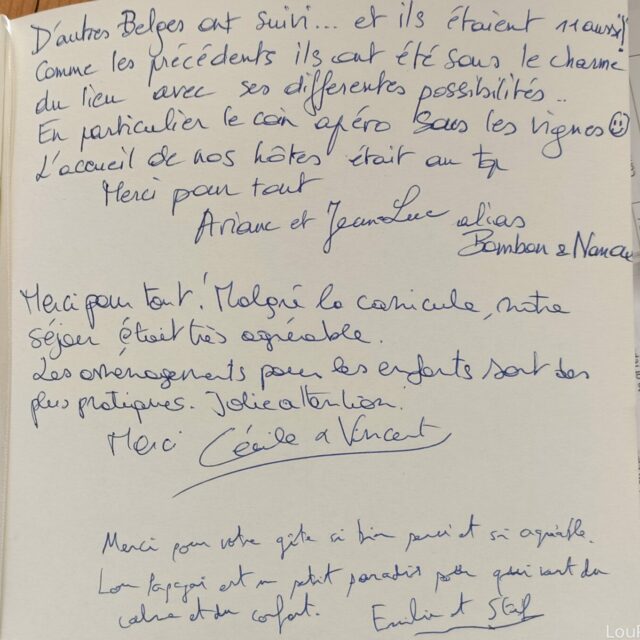 D'autres Belges ont suivi... et ils étaient 11 aussi!
Comme les précédents ils ont été sous le charme
du lieu avec ses differentes possibilités..
En particulier le coin apéro sous les vignes ☺
L'accueil de nos hôtes était au top
Merci pour tout
Ariane et Jean-Luc alias
Bombon &
Merci pour tout! Malgré la canicule, notre
séjour était très agréable.
Les aménagements pour les enfants sont des
plus pratiques. Jolie attention.
Merci Cécile & Vincent
Merci pour votre gîte si bien pensé et si agréable.
Lou Papagai est un petit paradis pour qui veut du
calme et du confort. Emilie et
LouP